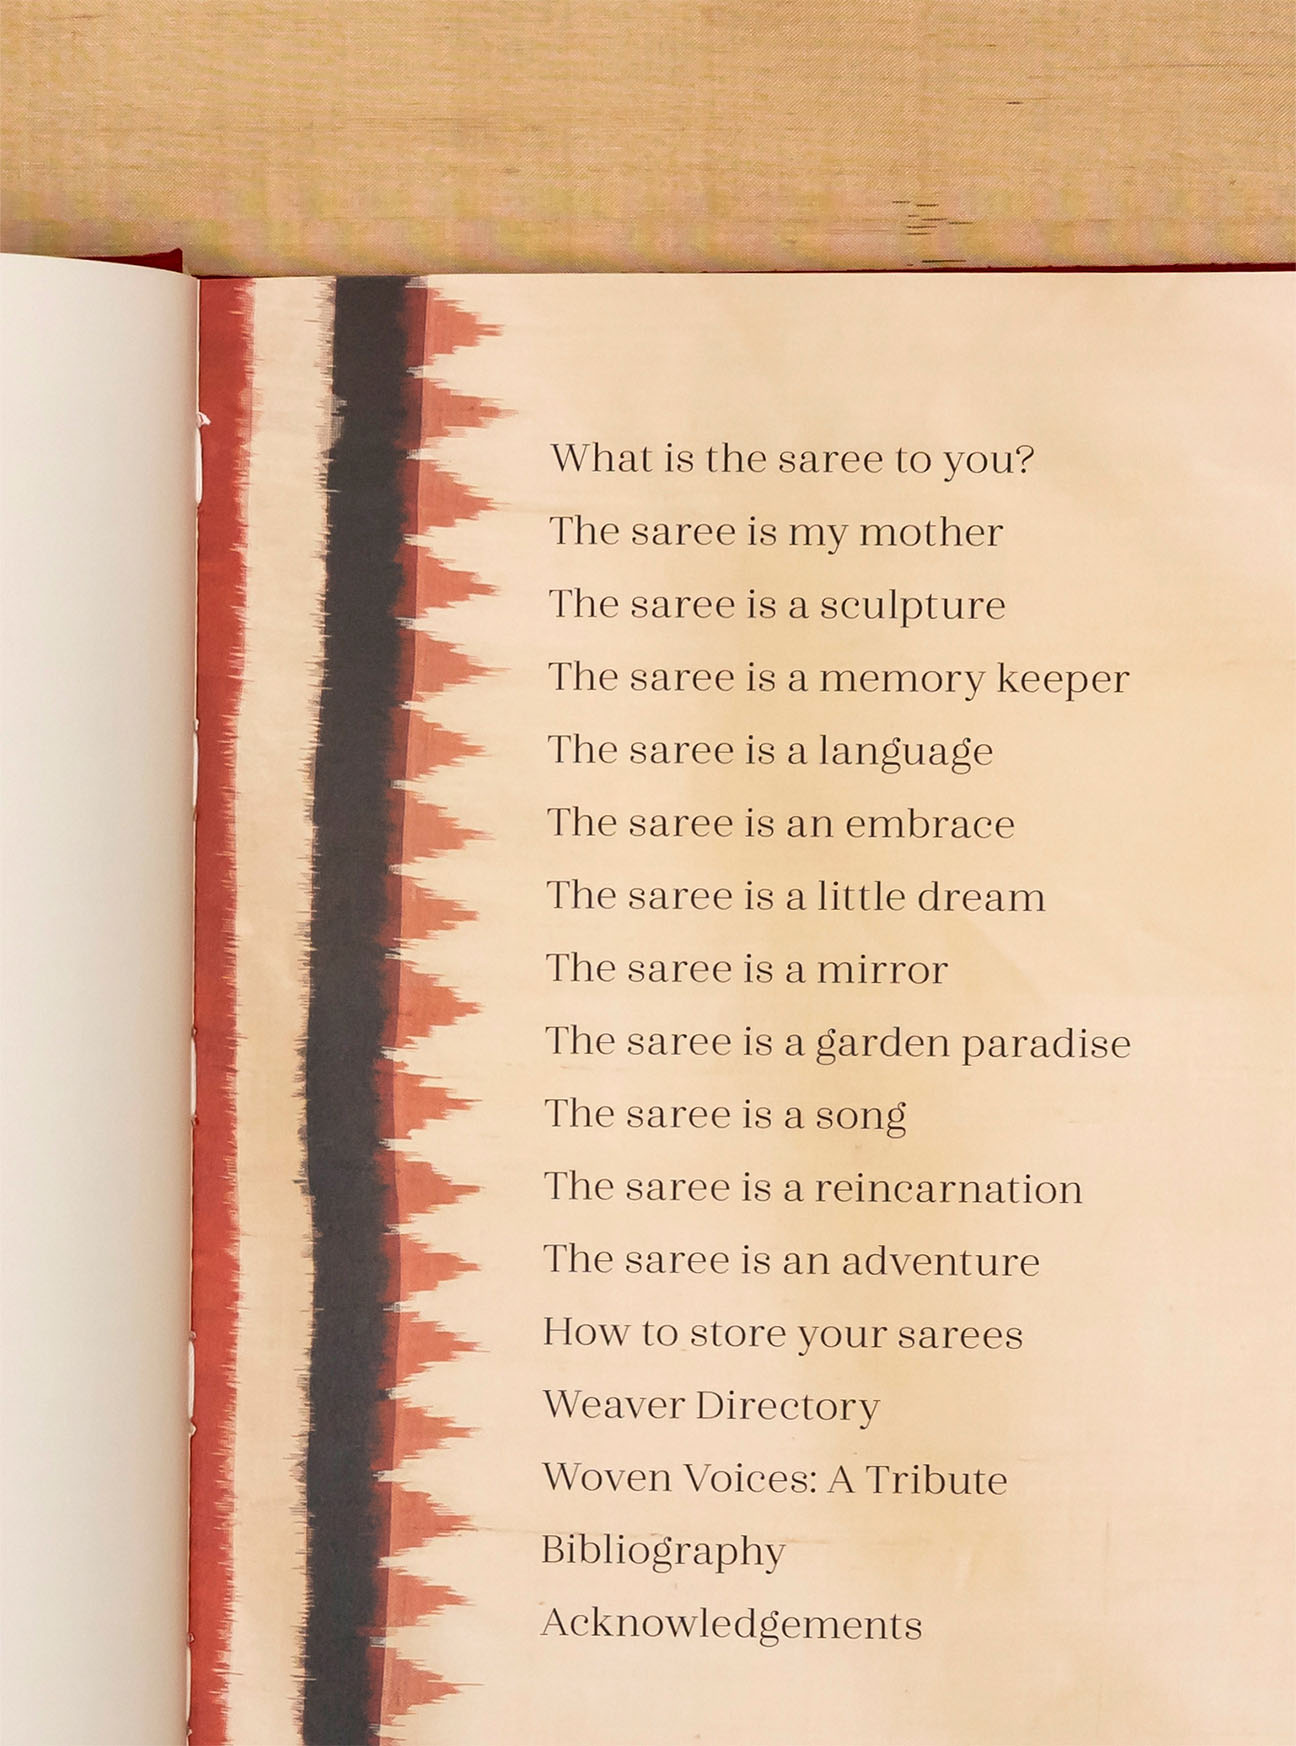 What is the saree to you?
The saree is my mother
The saree is a sculpture
The saree is a memory keeper
The saree is a language
The saree is an embrace
The saree is a little dream
The saree is a mirror
The saree is a garden paradise
The saree is a song
The saree is a reincarnation
The saree is an adventure
How to store your sarees
Weaver Directory
Woven Voices: A Tribute
Bibliography
Acknowledgements